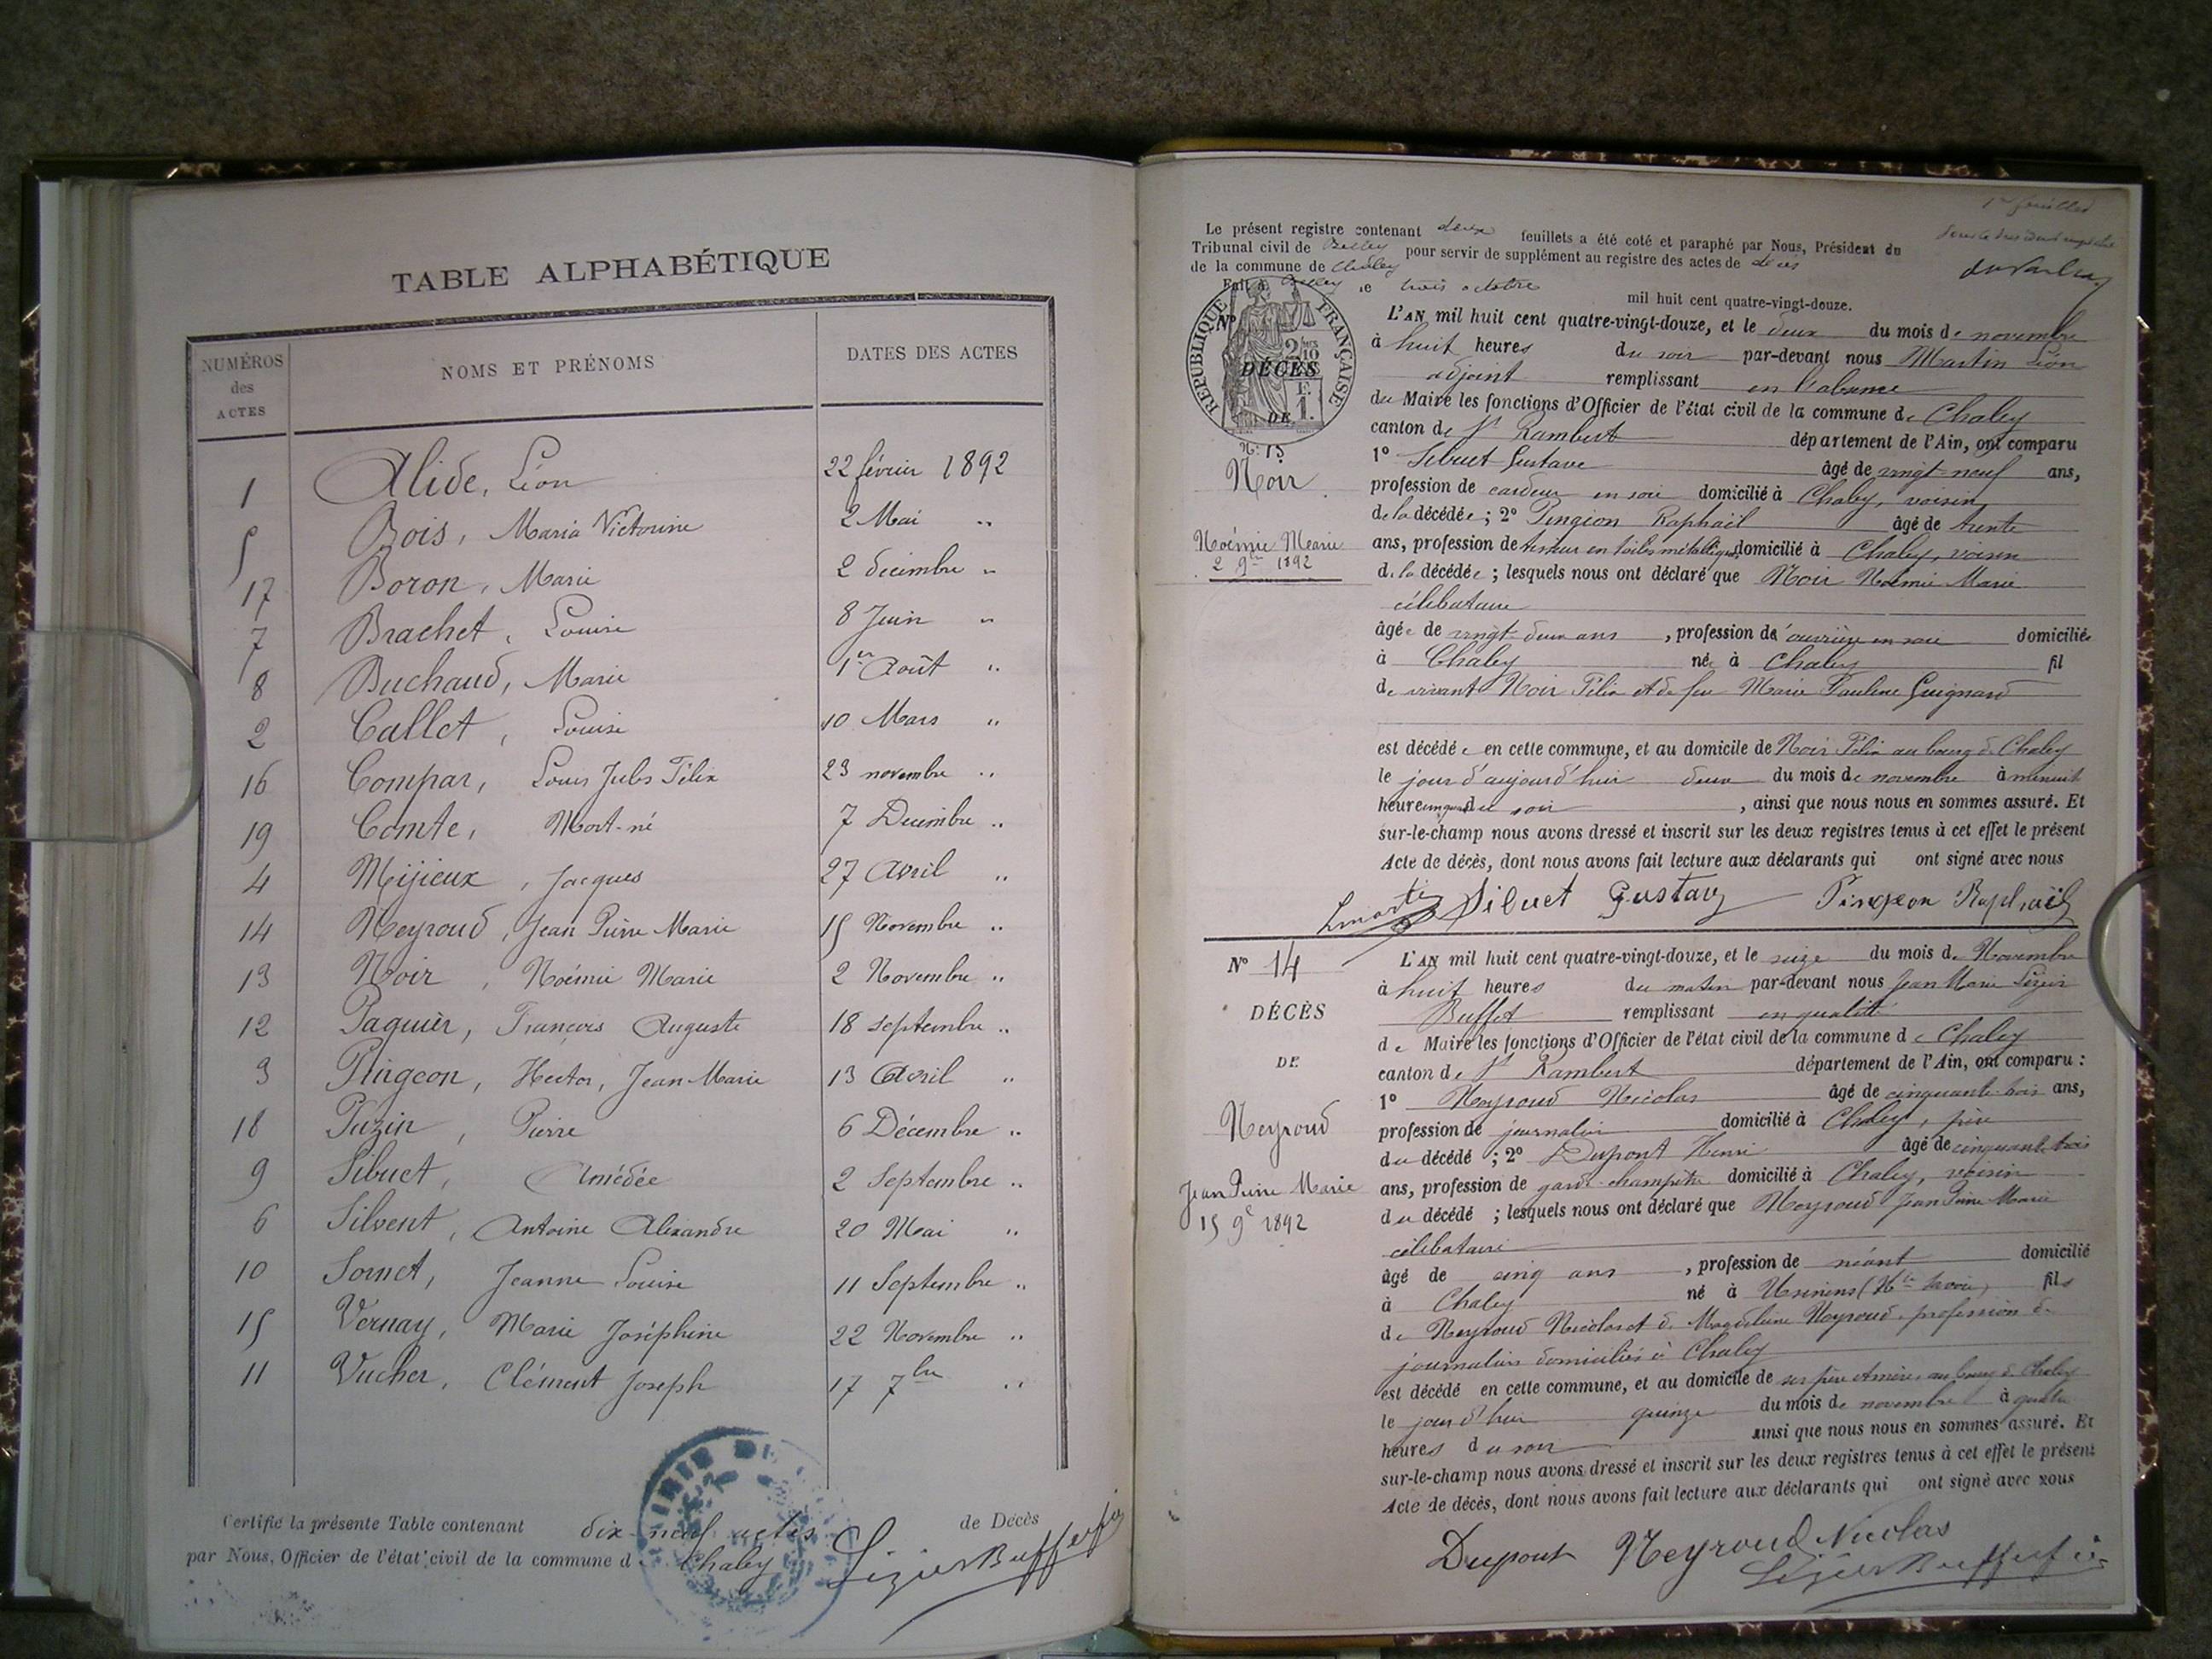 TABLE ALPHABÉTIQUE
NUMÉROS des ACTES
NOMS ET PRÉNOMS
DATES DES ACTES
1 Alide, Léon 22 février 1892
5 Bois, Maria Victorine 2 Mai "
17 Boron, Marie 2 décembre "
7 Brachet, Louise 8 Juin "
8 Buchaud, Marie 1er Août "
2 Callet, Louise 10 Mars "
16 Compar, Louis Jules Félix 23 novembre "
19 Comte, Mort-né 7 Décembre "
4 Mijieux, Jacques 27 Avril "
14 Neyroud, Jean Pierre Marie 15 Novembre "
13 Noir, Noémie Marie 2 Novembre "
12 Paquier, François Auguste 18 septembre "
3 Pingeon, Hector, Jean Marie 13 Avril "
18 Puzin, Pierre 6 Décembre "
9 Sibuet, Amédée 2 Septembre "
6 Silvent, Antoine Alexandre 20 Mai "
10 Sornet, Jeanne Louise 11 Septembre "
15 Vernay, Marie Joséphine 22 Novembre "
11 Vucher, Clément Joseph 17 7bre "
Certifié la présente Table contenant dix-neuf actes de Décès
par Nous, Officier de l'état civil de la commune de Chaley
1er feuillet
Le présent registre contenant deux feuillets a été coté et paraphé par Nous, Président du
Tribunal civil de Belley pour servir de supplément au registre des actes de décès
de la commune de Chaley
Fait à Belley le trois octobre mil huit cent quatre-vingt-douze.
RÉPUBLIQUE FRANÇAISE
N°
2/10
DÉCÈS
E.
1.
DE
N° 13
Noir
Noémie Marie
2 9bre 1892
L'AN mil huit cent quatre-vingt-douze, et le deux du mois de novembre
à huit heures du soir par-devant nous Martin Léon
adjoint remplissant en l'absence
du Maire les fonctions d'Officier de l'état civil de la commune de Chaley
canton de St Rambert département de l'Ain, ont comparu
1° Sibuet Gustave âgé de vingt-neuf ans,
profession de cardeur en soie domicilié à Chaley, voisin
de la décédée ; 2° Pingeon Raphaël âgé de trente
ans, profession de tisseur en toiles métalliques domicilié à Chaley, voisin
de la décédée ; lesquels nous ont déclaré que Noir Noémie Marie
célibataire
âgée de vingt-deux ans, profession de ouvrière en soie domiciliée
à Chaley née à Chaley fil
de vivant Noir Félix et de feu Marie Pauline Guignard
est décédée en cette commune, et au domicile de Noir Félix au bourg de Chaley
le jour d'aujourd'hui deux du mois de novembre à
heure du soir, ainsi que nous nous en sommes assuré. Et
sur-le-champ nous avons dressé et inscrit sur les deux registres tenus à cet effet le présent
Acte de décès, dont nous avons fait lecture aux déclarants qui ont signé avec nous
Sibuet Gustave Pingeon Raphaël
N° 14
DÉCÈS
DE
Neyroud
Jean Pierre Marie
15 9e 1892
L'AN mil huit cent quatre-vingt-douze, et le seize du mois de Novembre
à huit heures du matin par-devant nous Jean Marie Légier
Buffet remplissant en qualité
de Maire les fonctions d'Officier de l'état civil de la commune de Chaley
canton de St Rambert département de l'Ain, ont comparu :
1° Neyroud Nicolas âgé de cinquante-trois ans,
profession de journalier domicilié à Chaley, père
du décédé ; 2° Dupont Henri âgé de cinquante-trois
ans, profession de garde-champêtre domicilié à Chaley, voisin
du décédé ; lesquels nous ont déclaré que Neyroud Jean Pierre Marie
célibataire
âgé de cinq ans, profession de néant domicilié
à Chaley né à Usinens (Hte Savoie) fils
de Neyroud Nicolas et de Magdeleine Neyroud, profession de
journaliers domiciliés à Chaley
est décédé en cette commune, et au domicile de ses père et mère, au bourg de Chaley
le jour d'hier quinze du mois de novembre à quatre
heures du soir ainsi que nous nous en sommes assuré. Et
sur-le-champ nous avons dressé et inscrit sur les deux registres tenus à cet effet le présent
Acte de décès, dont nous avons fait lecture aux déclarants qui ont signé avec nous
Dupont Neyroud Nicolas